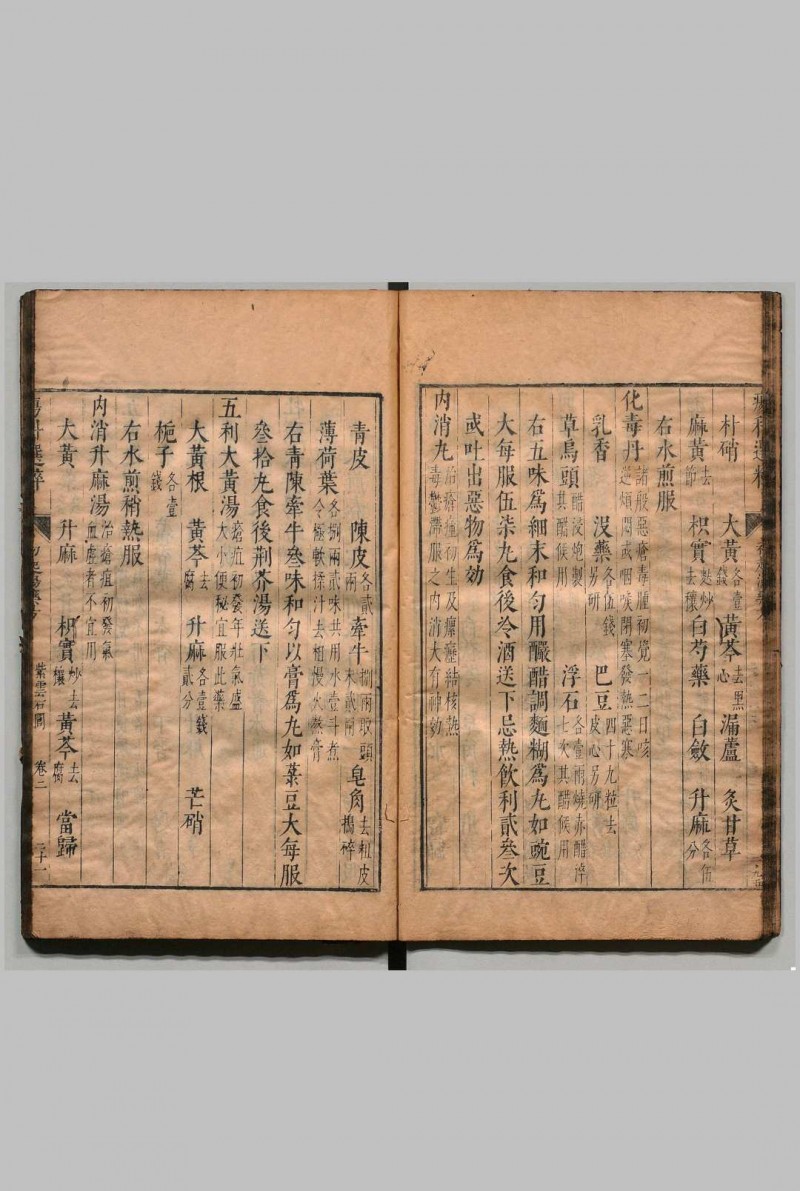 瘍科選粹
朴硝 大黃各壹錢 黃芩去黑心 漏蘆 炙甘草
麻黃去節 枳實麩炒去穰 白芍藥 白蘞 升麻各伍分
右水煎服
化毒丹諸般惡瘡毒腫初覺一二日咳逆煩悶或咽喉閉塞發熱惡寒
乳香 沒藥各伍錢另研 巴豆四十九粒去皮心另研
草烏頭醋浸炮製其醋候用 浮石各壹兩燒赤醋淬七次其醋候用
右五味爲細末和勻用釅醋調麵糊爲丸如豌豆
大每服伍柒丸食後冷酒送下忌熱飲利貳叁次
或吐出惡物爲効
內消丸治瘡癰初生及癭癧結核熱毒鬱滯服之內消大有神効
青皮 陳皮各貳兩 牽牛捌兩取頭末貳兩 皂角去粗皮搗碎
薄荷葉各捌兩貳味共用水壹斗煮令極軟揉汁去粗慢火熬膏
右青陳牽牛叁味和勻以膏爲丸如菉豆大每服
叁拾丸食後荆芥湯送下
五利大黃湯瘡疽初發年壯氣盛大小便秘宜服此藥
大黃根 黃芩去腐 升麻各壹錢貳分 芒硝
梔子各壹錢
右水煎稍熱服
內消升麻湯治瘡疽初發氣血虛者不宜用
大黃 升麻 枳實炒去穰 黃芩去腐 當歸
瘍科選粹 紫雲石閣 卷三 二十一